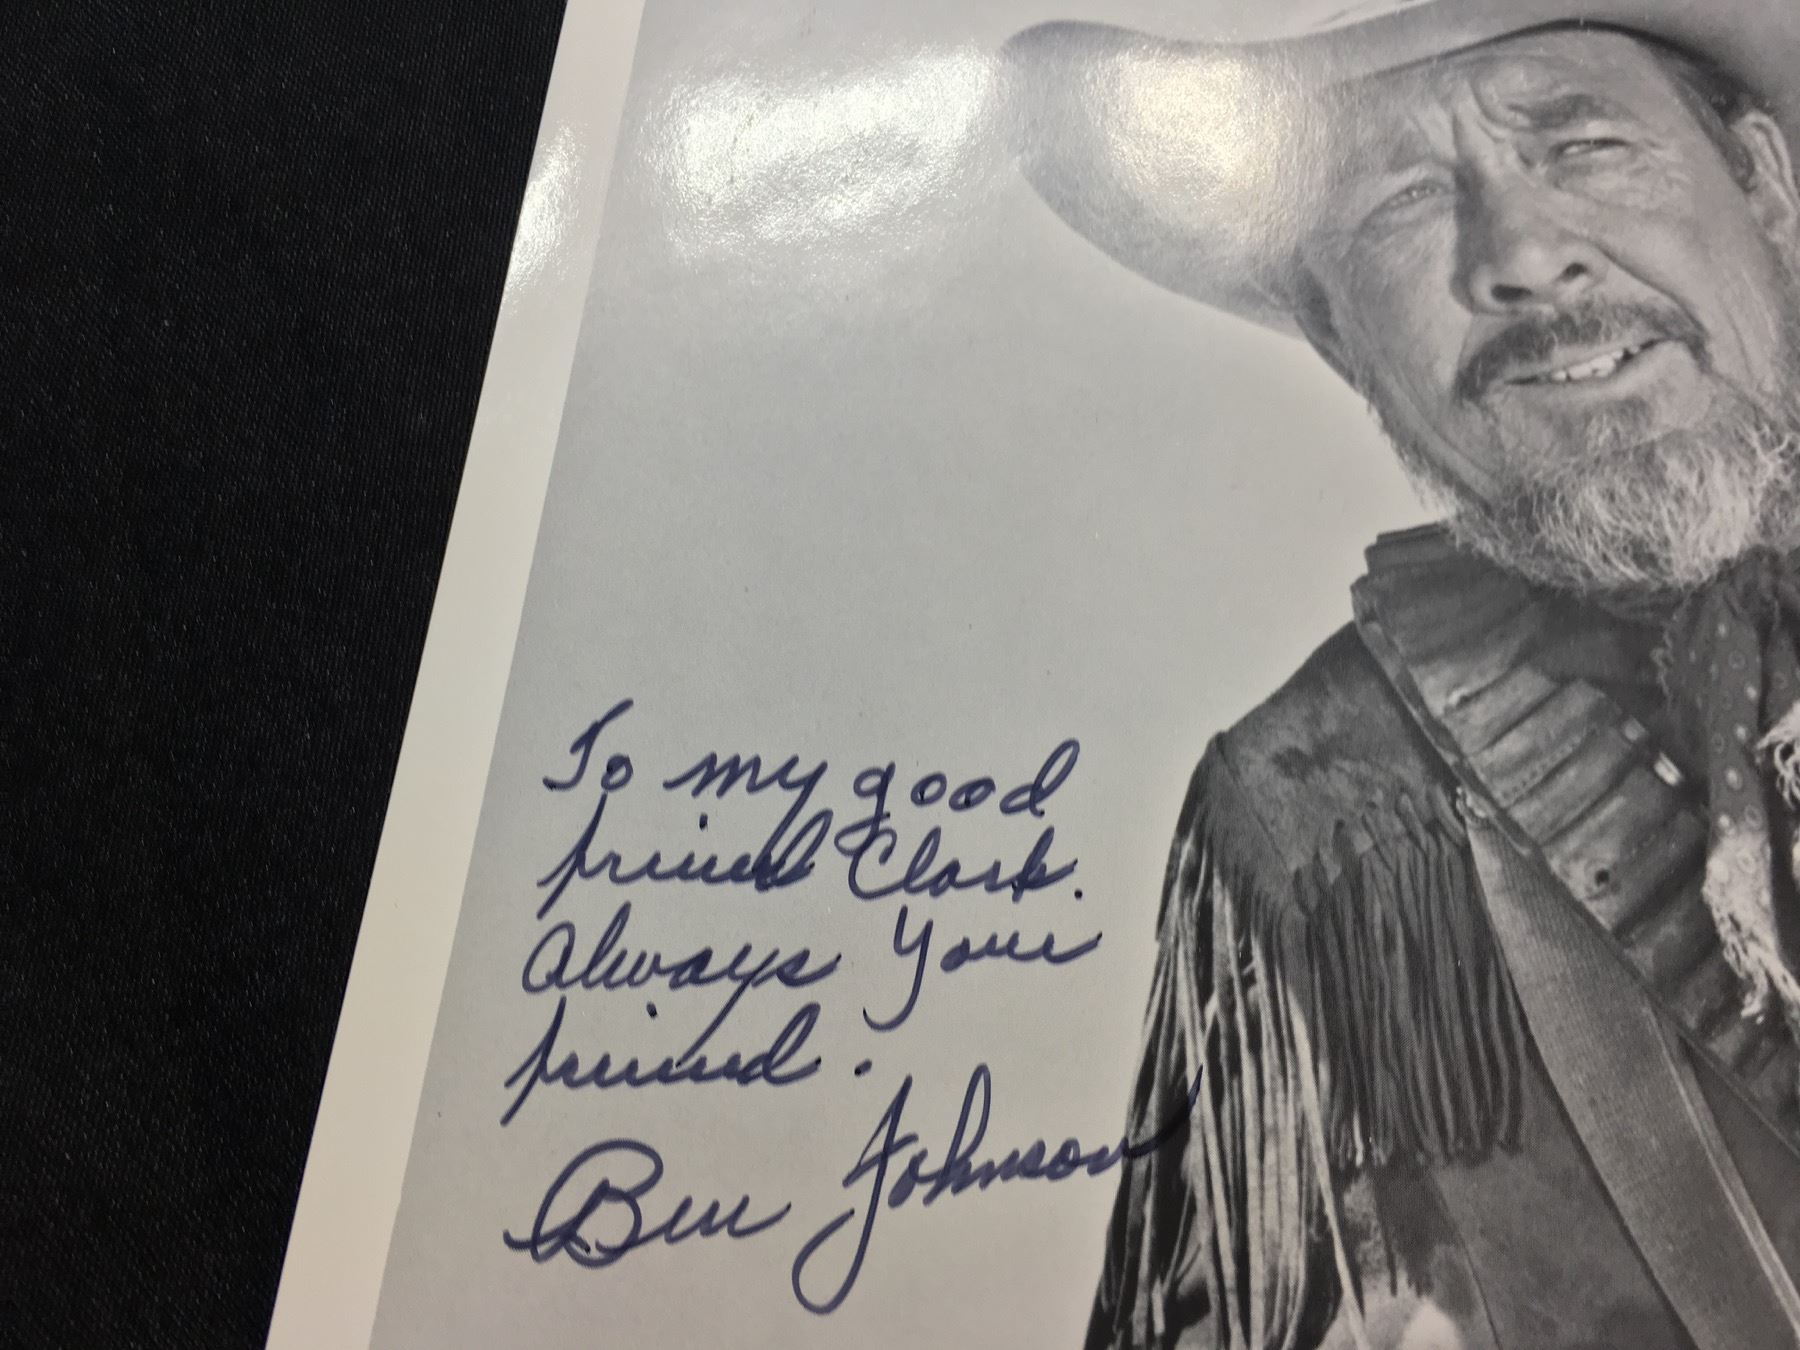 To my good
friend Clark.
Always Your
friend.
Ben Johnson